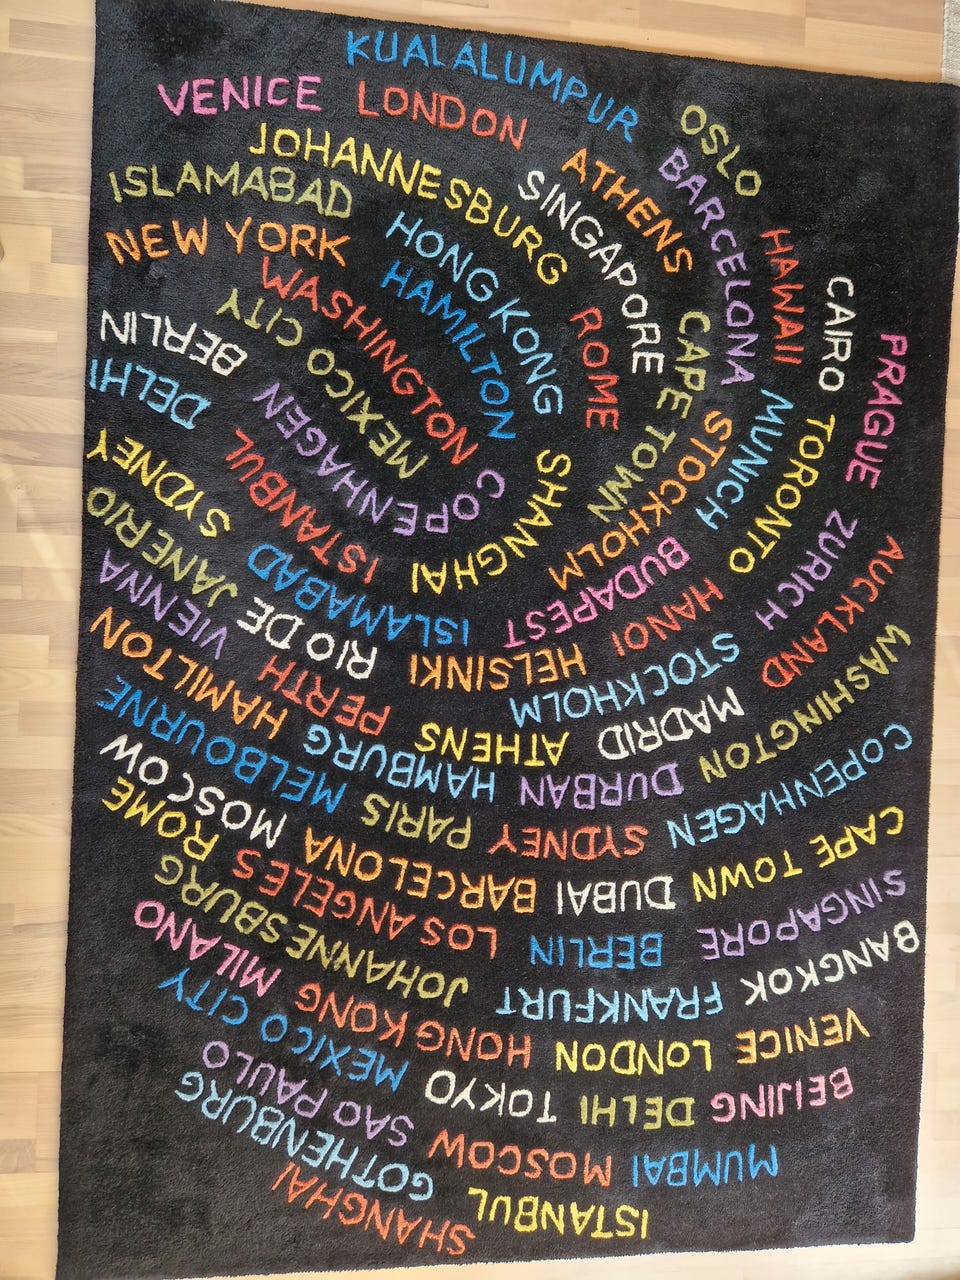 KUALALUMPUR
OSLO
VENICE
LONDON
ATHENS
BARCELONA
HAWAII
CAIRO
PRAGUE
JOHANNESBURG
SINGAPORE
CAPE TOWN
MUNICH
TORONTO
ZURICH
AUCKLAND
ISLAMABAD
HONG KONG
ROME
STOCKHOLM
BUDAPEST
HANOI
NEW YORK
HAMILTON
WASHINGTON
MEXICO CITY
BERLIN
COPENHAGEN
SHANGHAI
DELHI
ISTANBUL
ISLAMABAD
HELSINKI
STOCKHOLM
MADRID
WASHINGTON
SYDNEY
RIO DE JANERIO
PERTH
ATHENS
DURBAN
COPENHAGEN
VIENNA
HAMBURG
SYDNEY
CAPE TOWN
HAMILTON
MELBOURNE
PARIS
DUBAI
SINGAPORE
MOSCOW
BARCELONA
BERLIN
BANGKOK
ROME
LOS ANGELES
FRANKFURT
JOHANNESBURG
HONG KONG
LONDON
VENICE
MILANO
MEXICO CITY
TOKYO
DELHI
BEIJING
SAO PAULO
MOSCOW
MUMBAI
GOTHENBURG
ISTANBUL
SHANGHAI